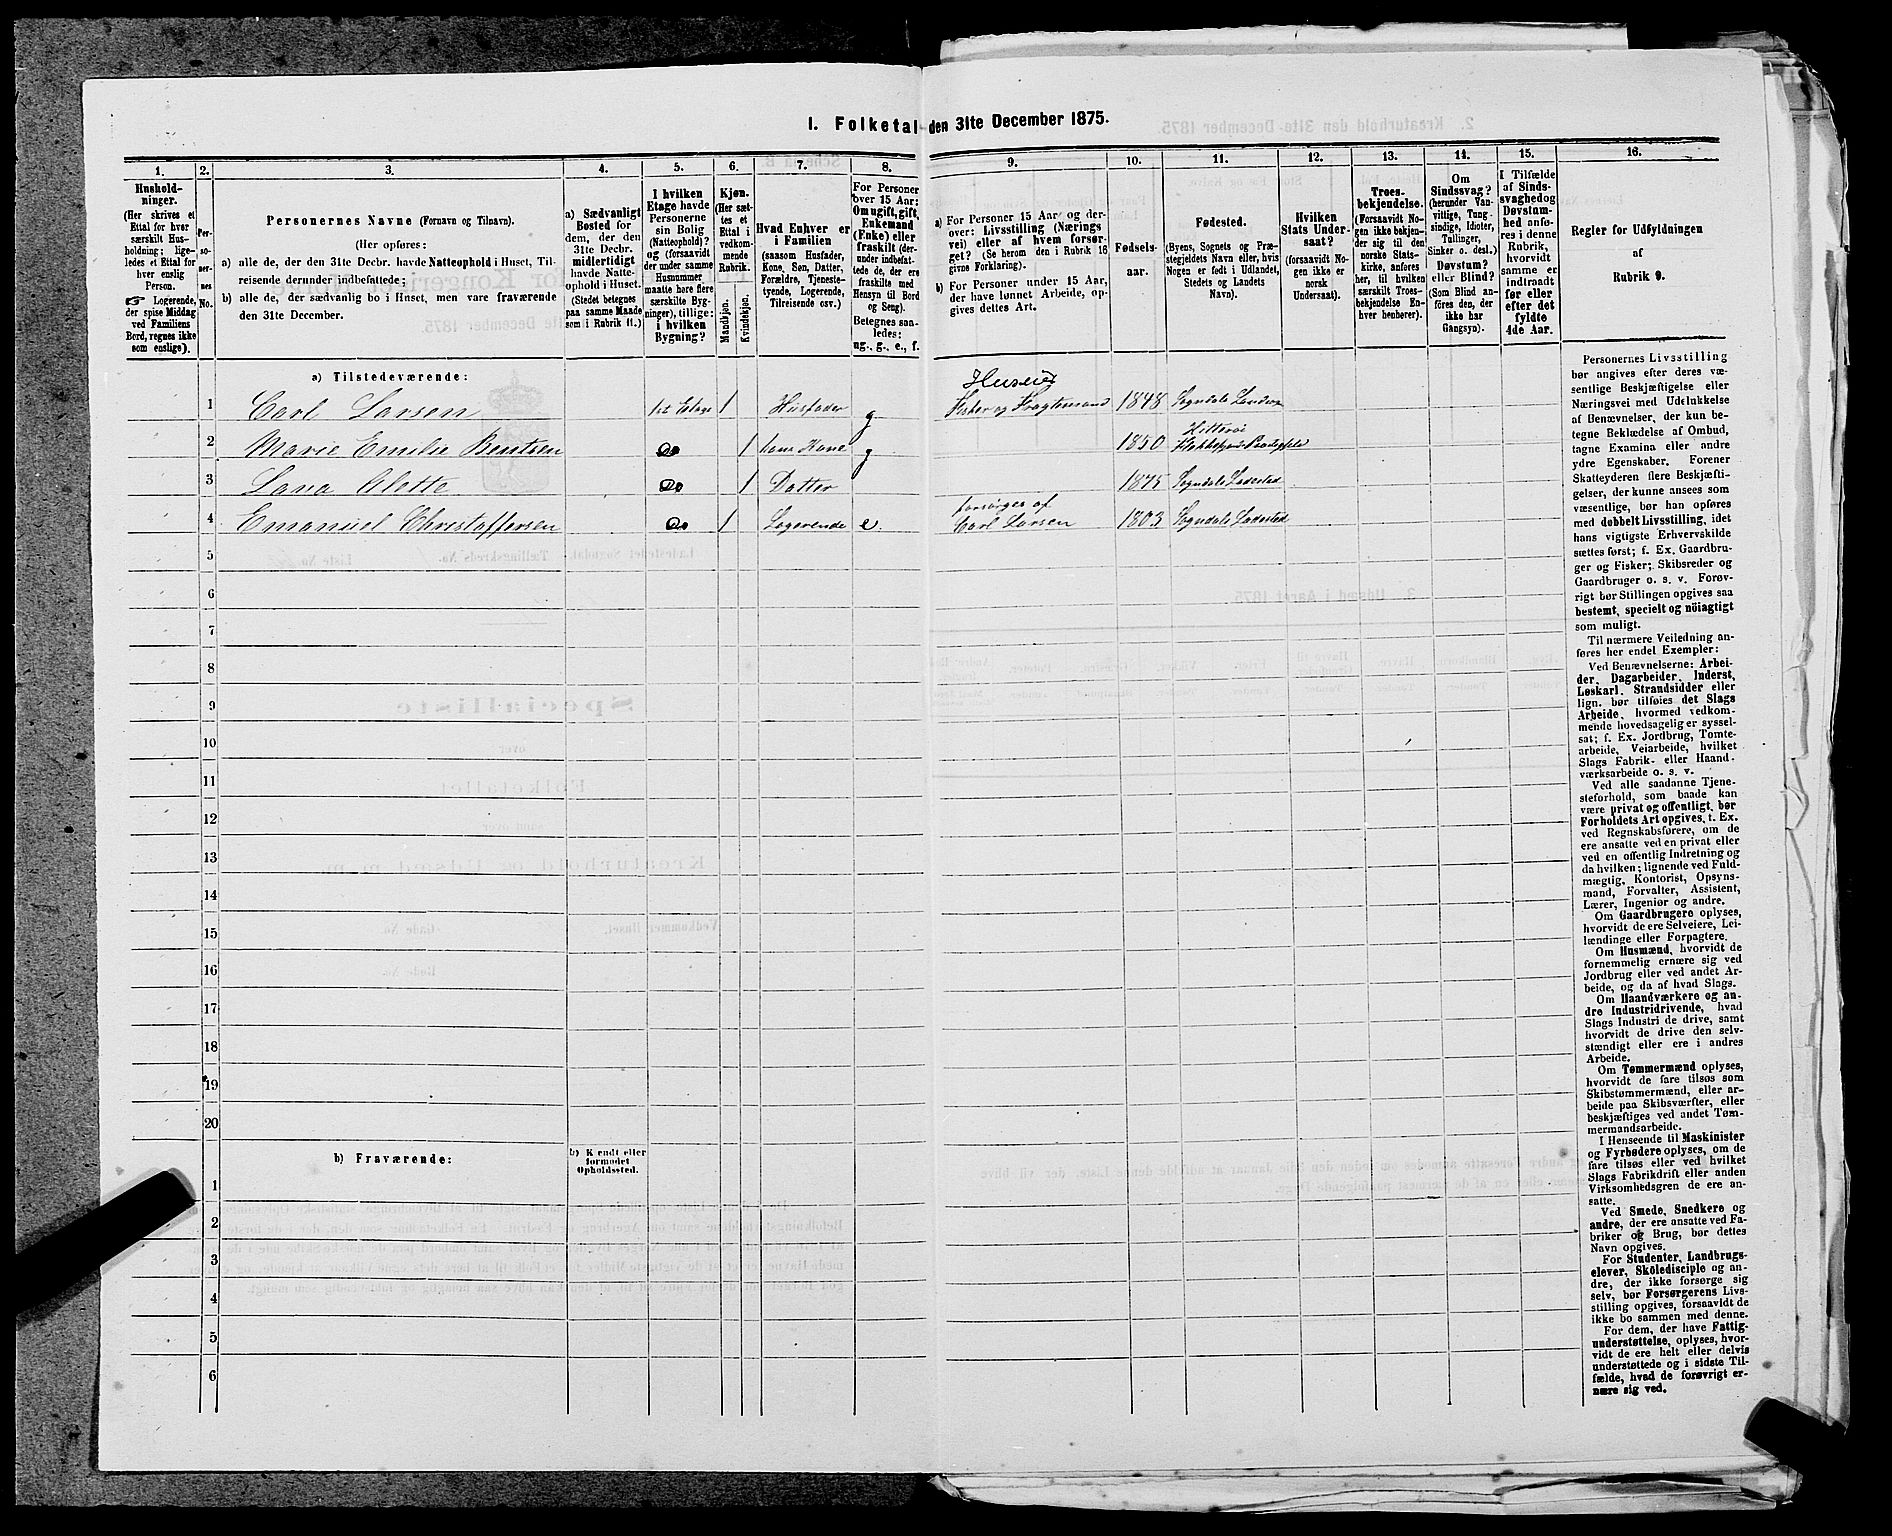 1. Folketal den 31te December 1875.
1.
Hushold-
ninger.
(Her skrives et
Ettal for hver
særskilt Hus-
holdning; lige-
ledes et Ettal for
hver enslig
Person.
☞ Logerende,
der spise Middag
ved Familiens
Bord, regnes ikke
som enslige).
2.
Per-
so-
ner-
nes
No.
3.
Personernes Navne (Fornavn og Tilnavn).
(Her opføres:
a) alle de, der den 31te Decbr. havde Natteophold i Huset, Til-
reisende derunder indbefattede;
b) alle de, der sædvanlig bo i Huset, men vare fraværende
den 31te December.
4.
a) Sædvanligt
Bosted for
dem, der den
31te Decbr.
midlertidigt
havde Natte-
ophold i Huset.
(Stedet betegnes
paa samme Maade
som i Rubrik 11.)
5.
I hvilken
Etage havde
Personerne
sin Bolig
(Natteophold)?
og (forsaavidt
der under samme
Husnummer
maatte høre flere
særskilte Byg-
ninger), tillige:
i hvilken
Bygning?
6.
Kjøn.
(Her sæt-
tes et
Ettal i
vedkom-
mende
Rubrik.
Mandkjøn.
Kvindekjøn.
7.
Hvad Enhver er
i Familien
(saasom Husfader,
Kone, Søn, Datter,
Forældre, Tjeneste-
tyende, Logerende,
Tilreisende osv.)
8.
For Personer
over 15 Aar:
Om ugift, gift,
Enkemand
(Enke) eller
fraskilt (der-
under indbefat-
tede de, der ere
fraskilte med
Hensyn til Bord
og Seng).
Betegnes saa-
ledes:
ug., g., e., f.
9.
a) For Personer 15 Aar og der-
over: Livsstilling (Nærings
vei) eller af hvem forsør-
get? (Se herom den i Rubrik 16
givne Forklaring).
b) For Personer under 15 Aar,
der have lønnet Arbeide, op-
gives dettes Art.
10.
Fødsels-
aar.
11.
Fødested.
(Byens, Sognets og Præ-
stegjeldets Navn eller, hvis
Nogen er født i Udlandet,
Stedets og Landets
Navn).
12.
Hvilken
Stats Under-
saat?
(forsaavidt No-
gen ikke er
norsk
Undersaat).
13.
Troes-
bekjendelse.
(Forsaavidt No-
gen ikke bekjen-
der sig til den
norske Stats-
kirke, anføres
her, til hvilken
særskilt Troes-
bekjendelse En-
hver henhører).
14.
Om
Sindssvag?
(herunder Van-
vittige, Tung-
sindige, Idioter,
Tullinger,
Sinker o. desl.)
Døvstum?
eller Blind?
(Som Blind an-
føres den, der
ikke har
Gangsyn).
15.
I Tilfælde
af Sinds-
svaghed og
Døvstum-
hed anfø-
res i denne
Rubrik,
hvorvidt
samme er
indtraadt
før eller
efter det
fyldte
4de Aar.
16.
Regler for Udfyldningen
af
Rubrik 9.
a) Tilstedeværende:
Huseier
1 Carl Larsen 1st Etage 1 Husfader g Fisker og Fragtemand 1848 Sogndals Ladested
Hitterø
2 Marie Emilie Bentsen Do 1 hans Kone g 1850
3 Lava Alette Do 1 Datter 1875 Sogndals Ladested
forsørges af
4 Emanuel Christoffersen Do 1 Logerende e. Carl Larsen 1803 Sogndals Ladested
5
6
7
8
9
10
11
12
13
14
15
16
17
18
19
20
b) Fraværende:
b) Kjendt eller
formodet
Opholdssted.
1
2
3
4
5
6
Personernes Livsstilling
bør angives efter deres væ-
sentlige Beskjæftigelse eller
Næringsvei med Udelukkelse
af Benævnelser, der kun be-
tegne Beklædelse af Ombud,
tagne Examina eller andre
ydre Egenskaber. Forener
Skatteyderen flere Beskjæfti-
gelser, der kunne ansees som
væsentlige, bør han opføres
med dobbelt Livsstilling, idet
hans vigtigste Erhvervskilde
sættes først; f. Ex. Gaardbru-
ger og Fisker; Skibsreder og
Gaardbruger o. s. v. Forøv-
rigt bør Stillingen opgives saa
bestemt, specielt og nöiagtigt
som muligt.
Til nærmere Veiledning an-
føres her endel Exempler:
Ved Benævnelserne: Arbei-
der, Dagarbeider, Inderst,
Løskarl, Strandsidder eller
lign. bør tilføies det Slags
Arbeide, hvormed vedkom-
mende hovedsagelig er syssel-
sat; f. Ex. Jordbrug, Tomte-
arbeide, Veiarbeide, hvilket
Slags Fabrik- eller Haand-
værksarbeide o. s. v.
Ved alle saadanne Tjene-
steforhold, som baade kan
være privat og offentligt, bør
Forholdets Art opgives, t. Ex.
ved Regnskabsførere, om de
ere ansatte ved en privat eller
ved en offentlig Indretning og
da hvilken; lignende ved Fuld-
mægtig, Kontorist, Opsyns-
mand, Forvalter, Assistent,
Lærer, Ingeniør og andre.
Om Gaardbrugere oplyses,
hvorvidt de ere Selveiere, Lei-
lændinge eller Forpagtere.
Om Husmænd, hvorvidt de
fornemmelig ernære sig ved
Jordbrug eller ved andet Ar-
beide, og da af hvad Slags.
Om Haandværkere og an-
dre Industridrivende, hvad
Slags Industri de drive, samt
hvorvidt de drive den selv-
stændigt eller ere i andres
Arbeide.
Om Tømmermænd oplyses,
hvorvidt de fare tilsøs som
Skibstømmermænd, eller ar-
beide paa Skibsværfter, eller
beskjæftiges ved andet Tøm-
mermandsarbeide.
I Henseende til Maskinister
og Fyrbødere oplyses, om de
fare tilsøs eller ved hvilket
Slags Fabrikdrift eller anden
Virksomhedsgren de ere an-
satte.
Ved Smede, Snedkere og
andre, der ere ansatte ved Fa-
briker og Brug, bør dettes
Navn opgives.
For Studenter, Landbrugs-
elever, Skoledisciple og an-
dre, der ikke forsørge sig
selv, bør Forsørgerens Livs-
stilling opgives, forsaavidt de
ikke bo sammen med denne.
For dem, der have Fattig-
understøttelse, oplyses, hvor-
vidt de ere helt eller delvis
understøttede og i sidste Til-
fælde, hvad de forøvrigt er-
nære sig ved.